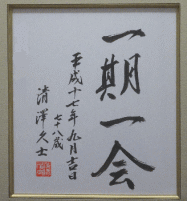 一期一会
平成十七年九月吉日
七十八歳
清澤久士